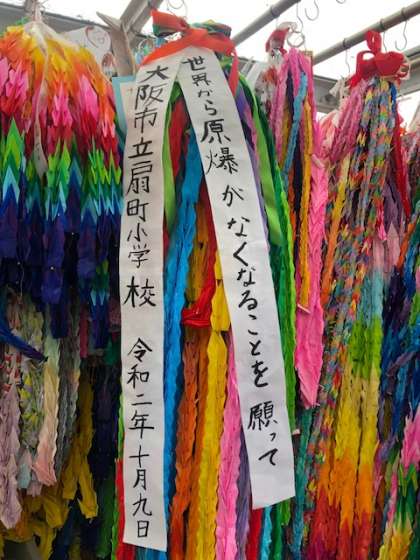 世界から原爆がなくなることを願って
大阪市立扇町小学校 令和二年十月九日